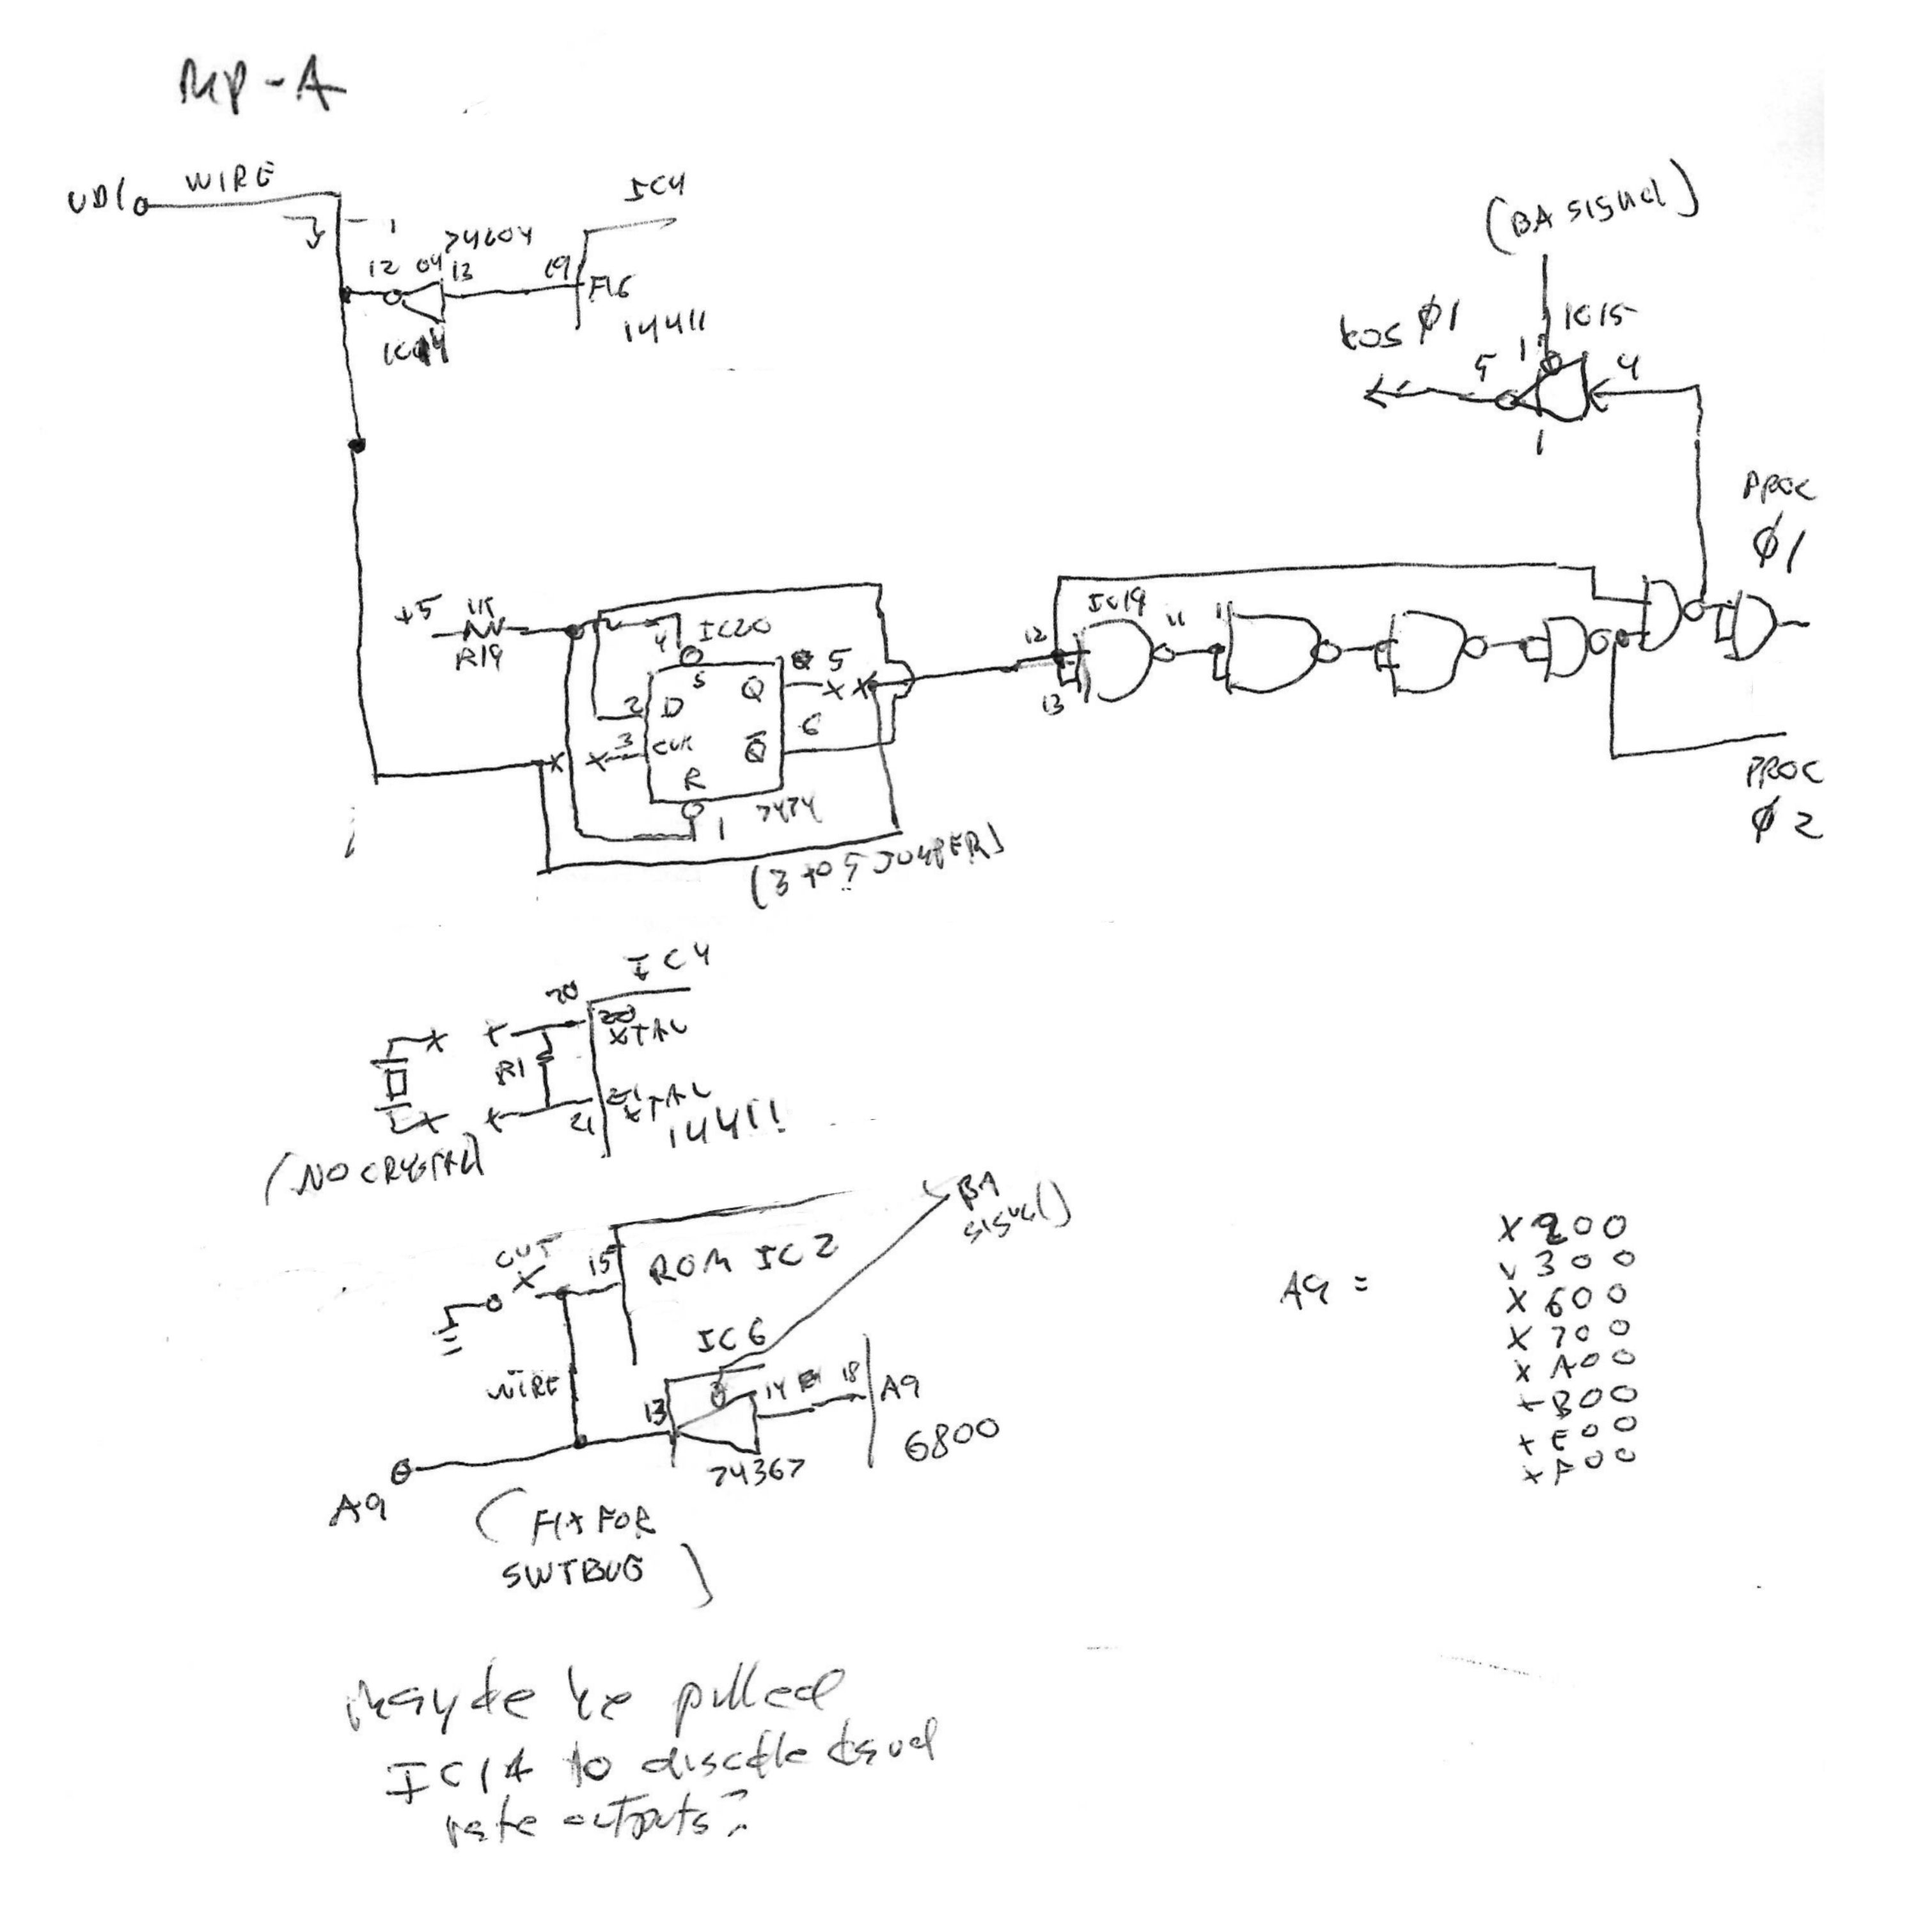 MP-A
UD1
WIRE
1
IC4
74L04
12 04 13
19
F16
14411
(BA SIGNAL)
IC15
bus Ø1
5 1 4
1
PROC
Ø1
+5
R19
4 IC20
S
Q 5
2 D
3 CLK
Q̄ 6
R
1
7474
(3 to 5 JUMPER)
IC19
12
11
13
PROC
Ø2
IC4
20
20
XTAL
R1
21
XTAL
21
14411
(NO CRYSTAL)
CUT
15
ROM IC2
BA
signal)
WIRE
IC6
13
14
18 A9
6800
74367
A9
(FIX FOR
SWTBUG)
A9 =
X200
X300
X600
X700
XA00
XB00
XE00
XF00
Maybe he pulled
IC14 to disable baud
rate outputs?